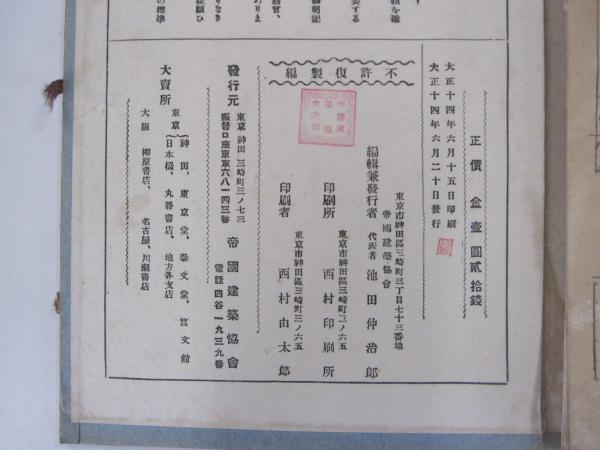 正價 金壹圓貳拾錢
大正十四年六月十五日印刷
大正十四年六月二十日發行
不許復製編
東京市神田區三崎町三丁目七十三番地
帝國建築協會
編輯兼發行者 代表者 池田仲治郎
東京市神田區三崎町三ノ六五
印刷所 西村印刷所
東京市神田區三崎町三ノ六五
印刷者 西村由太郎
東京神田三崎町三ノ七三
發行元 帝國建築協會
振替口座東京六八一四三番
電話四谷一九三九番
大賣所
東京
神田、東京堂、泰文堂、宮文館
日本橋、丸善書店、地方各支店
大阪 柳原書店、名古屋、川瀬書店